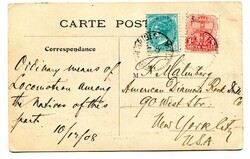 CARTE POST
Correspondence
Ordinary means of
Locomotion among
the Natives of this
part. 10/12/08
M
American Diamond Rock Drill Co
90 West Str.
New York City
U.S.A.